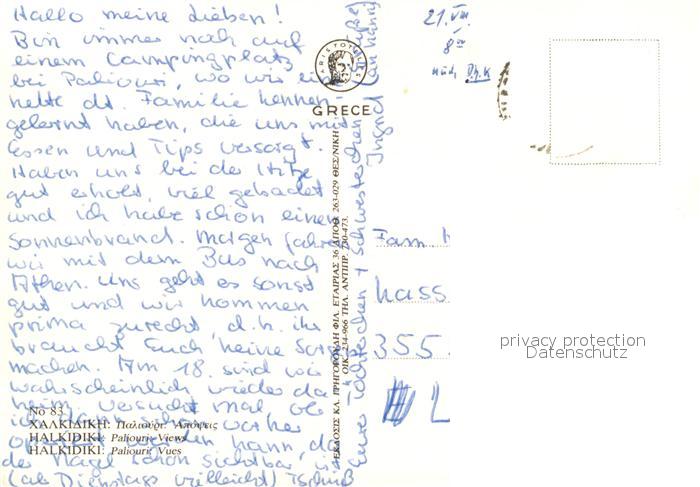 Hallo meine Lieben!
Bin immer noch auf
einem Campingplatz
bei Paliouri, wo wir eine
nette dt. Familie kennen-
gelernt haben, die uns mit
Essen und Tips versorgt.
Haben uns bei der Hitze
gut erholt, viel gebadet
und ich habe schon einen
Sonnenbrand. Morgen fahren
wir mit dem Bus nach
Athen. Uns geht es sonst
gut und wir kommen
prima zurecht d.h. ihr
braucht Euch keine Sorgen
machen. Am 18. sind wir
wahrscheinlich wieder da
heim. Versucht mal ob
ich dann schon vorher
werden kann, da
der Nagel schon sichtbar ist
(als Dienstags vielleicht) Tschüß
Eure Töchterchen + Schwesterchen
Ingrid
ARISTOTELIS
GRECE
ΕΚΔΟΣΙΣ ΚΛ. ΠΡΗΓΟΡΟΥΔΗ ΦΙΛ. ΕΤΑΙΡΙΑΣ 36 ΑΠΟΘ. 263-029 ΘΕΣ/ΝΙΚΗ
ΟΙΚ. 234-966 ΤΗΛ. ΑΝΤΙΠΡ. 730-473.
No 83
ΧΑΛΚΙΔΙΚΗ: Παλιούρι: Απόψεις
HALKIDIKI: Paliouri: Views
HALKIDIKI: Paliouri: Vues
21. VIII
8⁰⁰
Fam.
355
privacy protection
Datenschutz